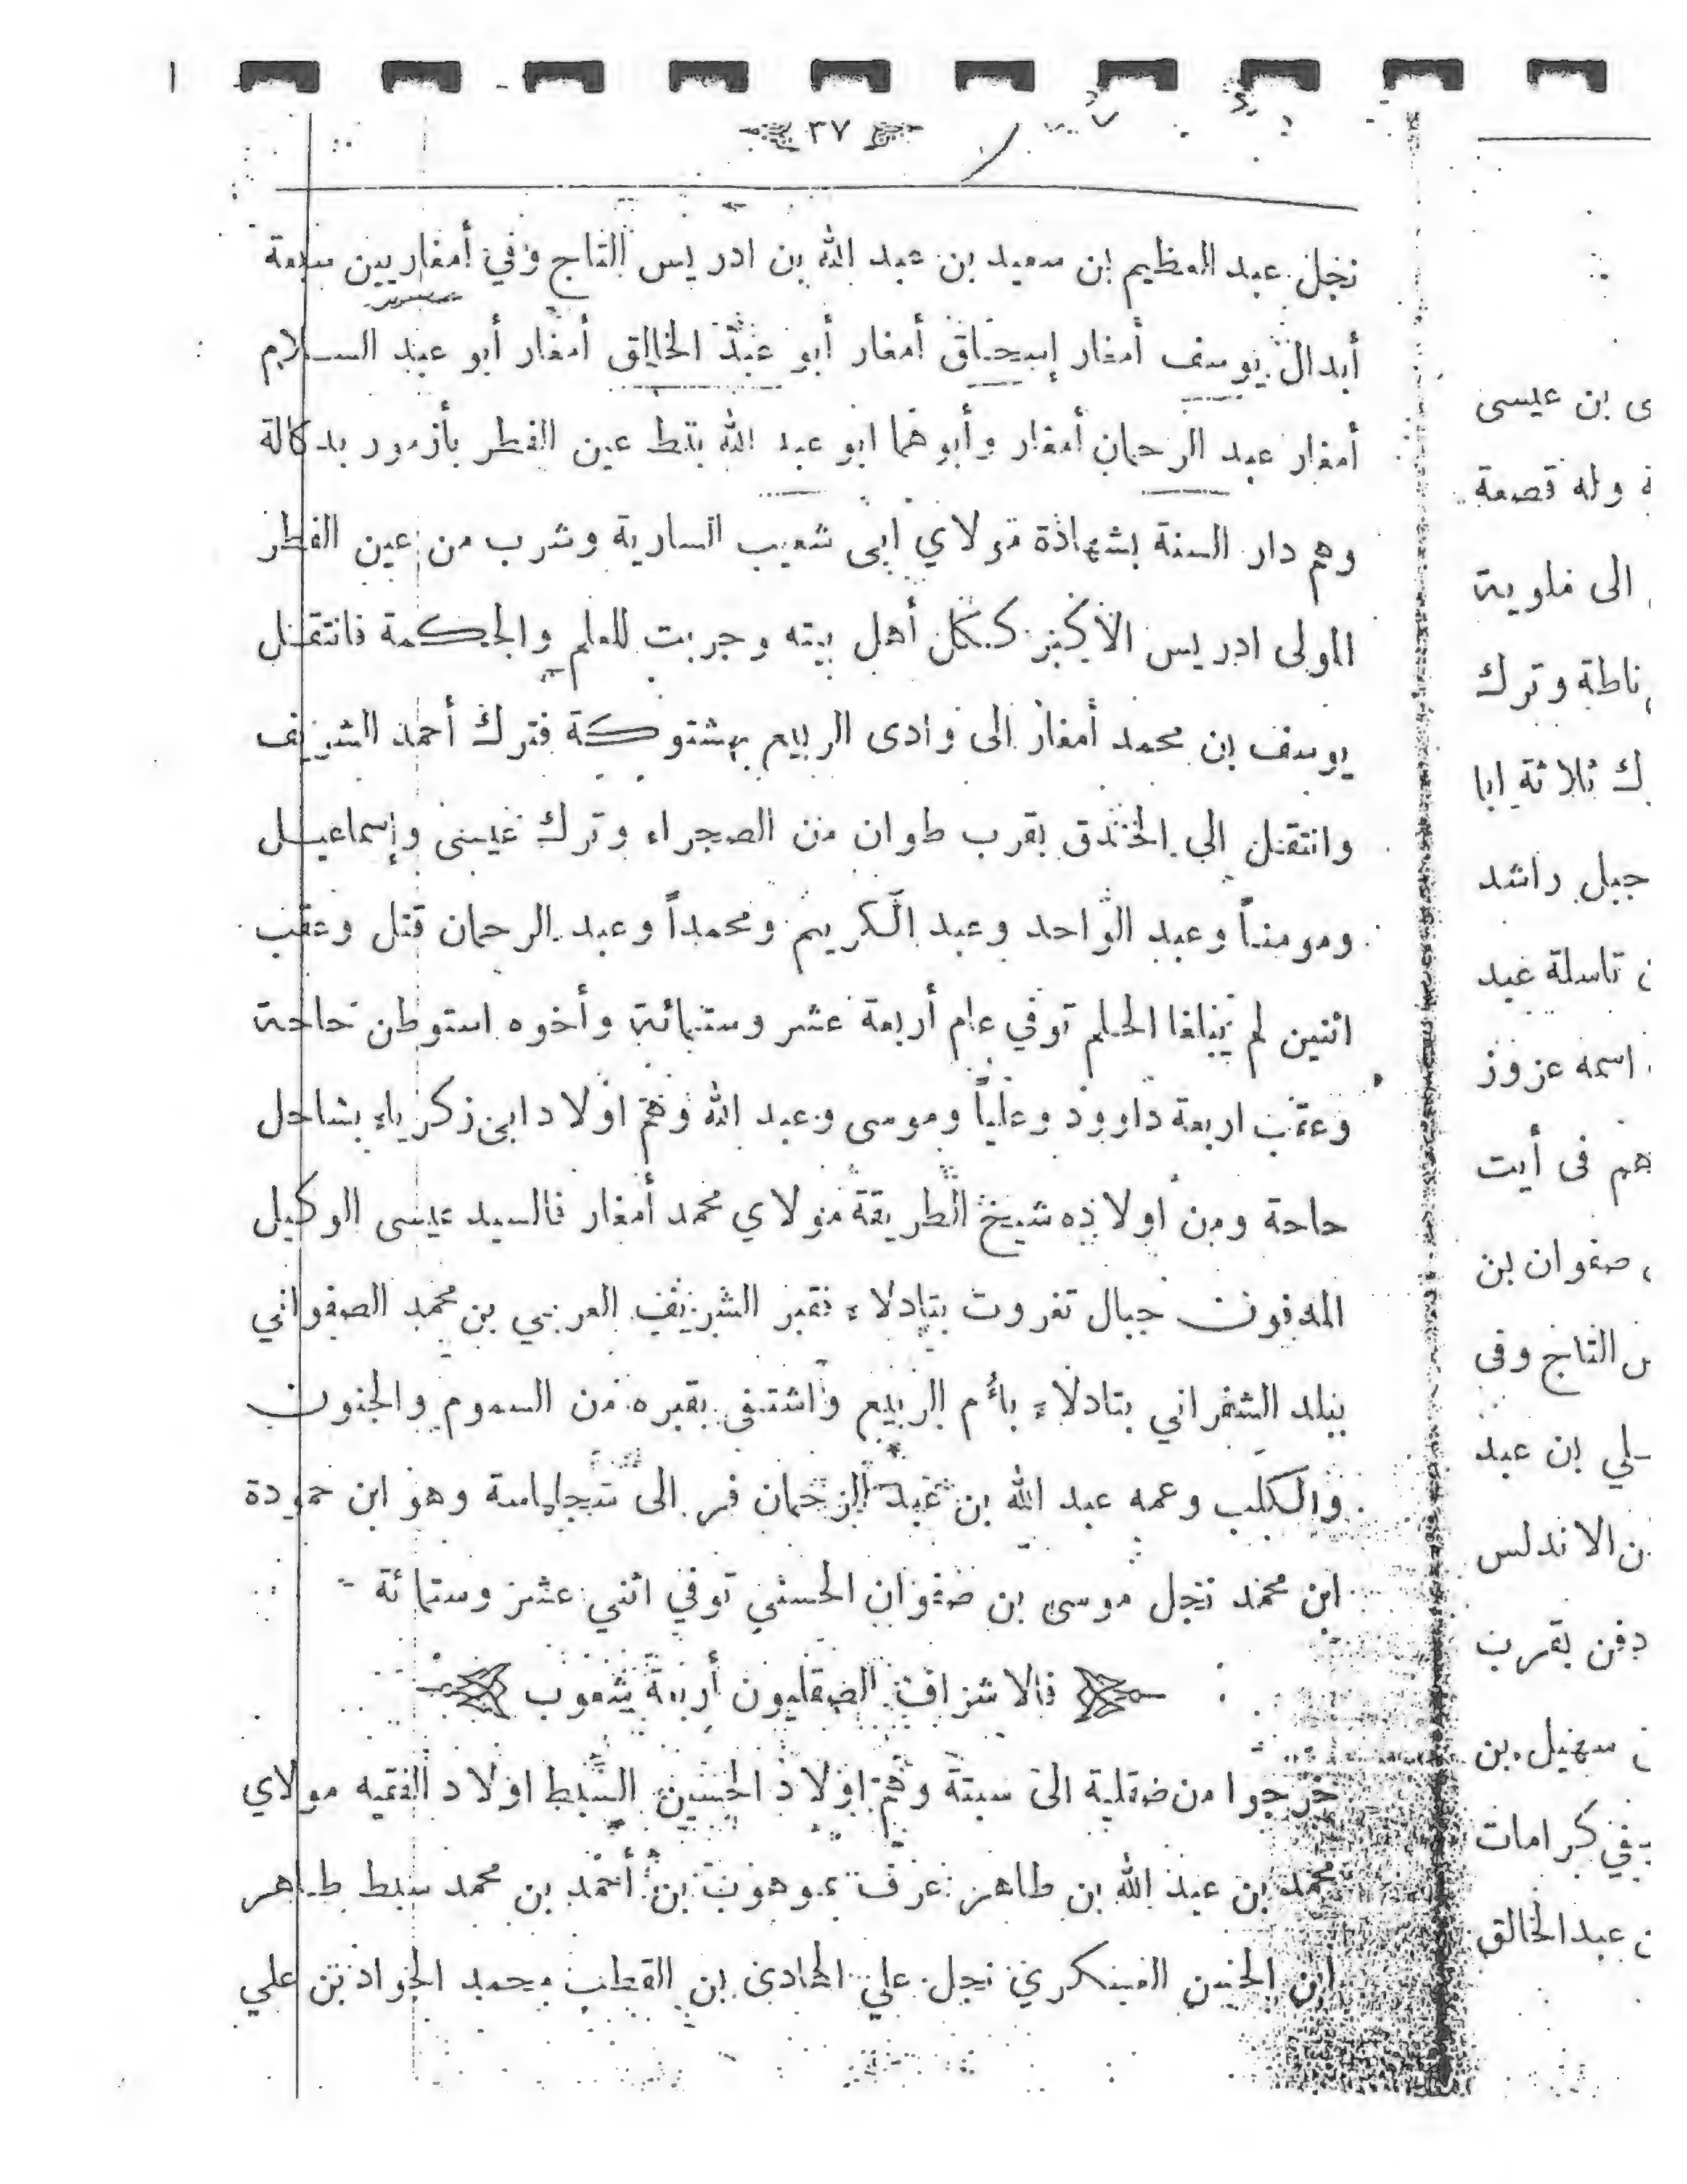 ٣٧
نجل عبد العظيم بن سعيد بن عبد الله بن ادريس التاج وفي أمغاريين سبعة
أبدال يوسف أمغار إسحاق أمغار أبو عبد الخالق أمغار أبو عبد السلام
أمغار عبد الرحمان أمغار وأبوهما ابو عبد الله بتط عين الفطر بأزمور بدكالة
وهم دار السنة بشهادة مولاي ابى شعيب السارية وشرب من عين الفطر
المولى ادريس الأكبر ككل أهل بيته وجربت للعلم والحكمة فانتقل
يوسف بن محمد أمغار الى وادى الربيع بهشتوكة فترك أحمد الشريف
وانتقل الى الخندق بقرب طوان من الصحراء وترك عيسى وإسماعيل
ومومناً وعبد الواحد وعبد الكريم ومحمداً وعبد الرحمان قتل وعقب
اثنين لم يبلغا الحلم توفي عام أربعة عشر وستمائة وأخوه استوطن حاحة
وعقب اربعة داوود وعلياً وموسى وعبد الله وهم اولاد ابى زكرياء بساحل
حاحة ومن أولاده شيخ الطريقة مولاي محمد أمغار فالسيد عيسى الوكيل
المدفون جبال تغروت بتادلاء نقبر الشريف العربي بن محمد الصفواني
ببلد الشفراني بتادلاء بأم الربيع واشتفى بقبره من السموم والجنون
والكلب وعمه عبد الله بن عبد الرحمان فر الى سجلماسة وهو ابن حمودة
ابن محمد نجل موسى بن صفوان الحسني توفي اثني عشر وستمائة
فالاشراف الصقليون أربعة شعوب
خرجوا من صقلية الى سبتة وهم اولاد الحسين السبط اولاد الفقيه مولاي
محمد بن عبد الله بن طاهر عرف بموهوب بن أحمد بن محمد سبط طاهر
ابن الحسن العسكري نجل علي الهادى بن القطب محمد الجواد بن علي
ى بن عيسى
وله قصعة
الى ملوية
ناطة وترك
ك ثلاثة ابا
جبل راشد
تاسلة عبد
اسمه عزوز
هم فى أيت
صفوان بن
س التاج وفى
لي بن عبد
ن الاندلس
دفن بقرب
سهيل بن
في كرامات
عبد الخالق